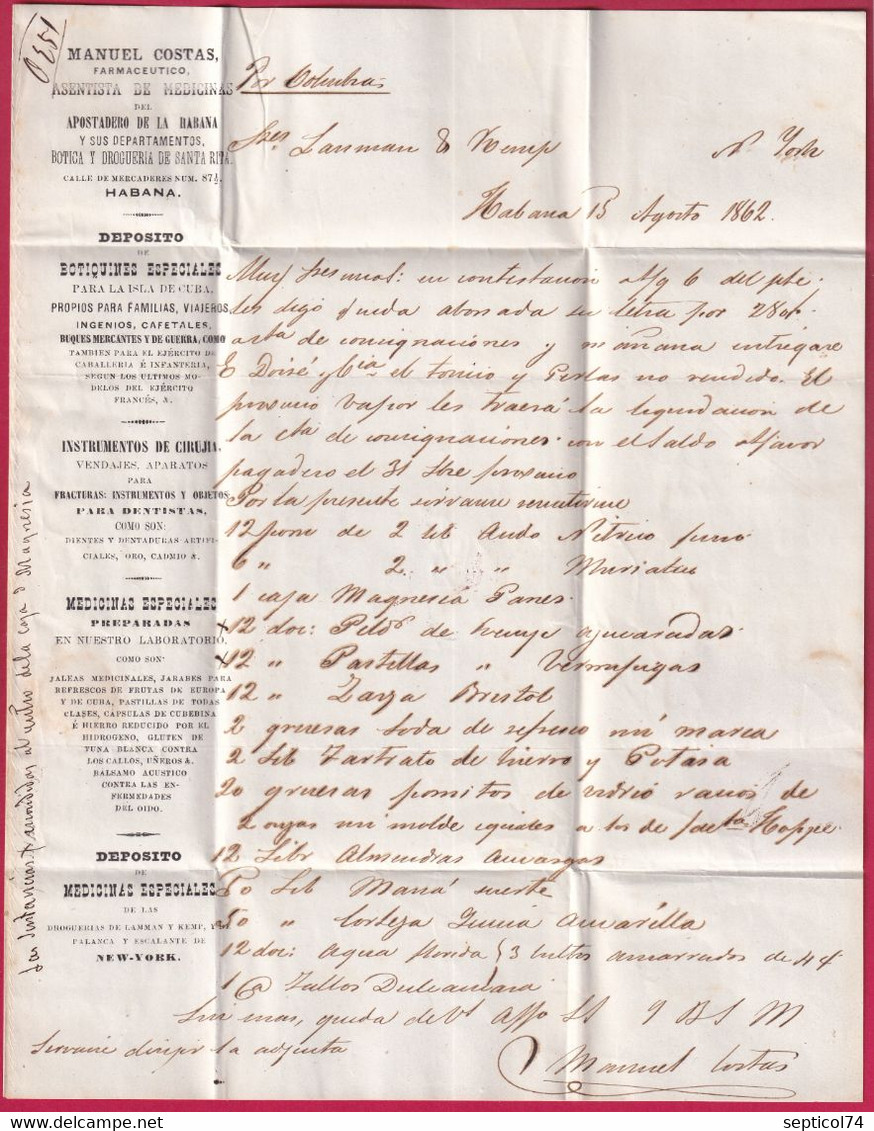 1530
MANUEL COSTAS,
FARMACEUTICO,
ASENTISTA DE MEDICINAS
DEL
APOSTADERO DE LA HABANA
Y SUS DEPARTAMENTOS,
BOTICA Y DROGUERIA DE SANTA RITA.
CALLE DE MERCADERES NUM. 87½.
HABANA.
DEPOSITO
DE
BOTIQUINES ESPECIALES
PARA LA ISLA DE CUBA,
PROPIOS PARA FAMILIAS, VIAJEROS,
INGENIOS, CAFETALES,
BUQUES MERCANTES Y DE GUERRA, COMO
TAMBIEN PARA EL EJÉRCITO DE
CABALLERIA É INFANTERIA,
SEGUN LOS ULTIMOS MO-
DELOS DEL EJÉRCITO
FRANCÉS, &.
INSTRUMENTOS DE CIRUJIA,
VENDAJES, APARATOS
PARA
FRACTURAS: INSTRUMENTOS Y OBJETOS
PARA DENTISTAS,
COMO SON:
DIENTES Y DENTADURAS ARTIFI-
CIALES, ORO, CADMIO &.
MEDICINAS ESPECIALES
PREPARADAS
EN NUESTRO LABORATORIO,
COMO SON:
JALEAS MEDICINALES, JARABES PARA
REFRESCOS DE FRUTAS DE EUROPA
Y DE CUBA, PASTILLAS DE TODAS
CLASES, CAPSULAS DE CUBEBINA
É HIERRO REDUCIDO POR EL
HIDROGENO, GLUTEN DE
TUNA BLANCA CONTRA
LOS CALLOS, UÑEROS &.
BALSAMO ACUSTICO
CONTRA LAS EN-
FERMEDADES
DEL OIDO.
DEPOSITO
DE
MEDICINAS ESPECIALES
DE LAS
DROGUERIAS DE LAMMAN Y KEMP, Y
PALANCA Y ESCALANTE DE
NEW-YORK.
Por Columbia
Sres Lanman & Kemp N. York
Habana 15 Agosto 1862.
Muy Sres mios: en contestacion 6 del pte
les digo queda abonada su letra por
cta de consignaciones y mañana entregare
E Doisé y Cia el tonico y Perlas no vendido. El
proximo vapor les traerá la liquidacion de
la cta de consignaciones con el saldo favor
pagadero el 31 proximo
Por la presente sirvanse remitirme
12 poms de 2 lib Acido Nitrico puro
6 " 2 " " Muriatico
1 caja Magnesia Panes
x 12 doc: Pild de Kemp azucaradas
x 12 " Pastillas " Vermifugas
12 " Zarza Bristol
2 gruesas Soda de refresco mi marca
2 Lib Tartrato de hierro y Potasa
20 gruesas pomitos de vidrio vacios de
2 onzas mi molde iguales a los de Hoppe
12 Libr Almendras amargas
50 Lib Maná suerte
50 " Corteza Quina Amarilla
12 doc: Agua florida 3 bultos amarrados de 4
1 @ Tallos Dulcamara
Sin mas, queda de Vs Affo SS Q B S M
Manuel Costas
Sirvanse dirijir la adjunta
Magnesia